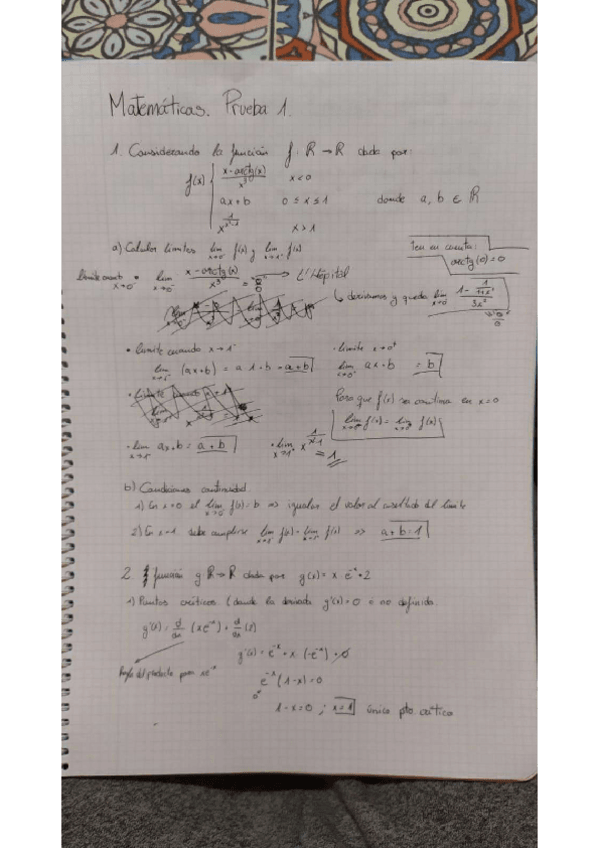 Matemáticas. Prueba 1.
1. Considerando la función f: R → R dada por:
f(x) { x - arctg(x) / x³   x < 0
ax + b   0 ≤ x ≤ 1   donde a, b ∈ R
x > 1
a) Calcular límites lim x→0⁻ f(x) y lim x→1⁺ f(x)
Ten en cuenta:
arctg(0) = 0
lim x→0⁻ x - arctg(x) / x³ = 0/0 → L'Hôpital
↳ derivamos y queda lim x→0⁻
• límite cuando x → 1⁻
• límite x → 0⁺
lim x→1⁻ (ax + b) = a · 1 + b = a + b
lim x→0⁺ ax + b = b
Para que f(x) sea continua en x = 0
lim f(x) = lim f(x)
• lim x→1⁻ ax + b = a + b
• lim x→1⁺ = 1
b) Condiciones continuidad
1) En x = 0 el lim x→0⁺ f(x) = b ⇒ igualar el valor al resultado del límite
2) En x = 1 debe cumplirse lim f(x) = lim f(x) ⇒ a + b = 1
2 función g R → R dada por g(x) = x · e⁻ˣ + 2
1) Puntos críticos (donde la derivada g'(x) = 0 o no definida
g'(x) = d/dx (xe⁻ˣ) + d/dx (2)
g'(x) = e⁻ˣ + x · (-e⁻ˣ) + 0
Regla del producto para xe⁻ˣ
e⁻ˣ (1 - x) = 0
1 - x = 0 ; x = 1 único pto crítico